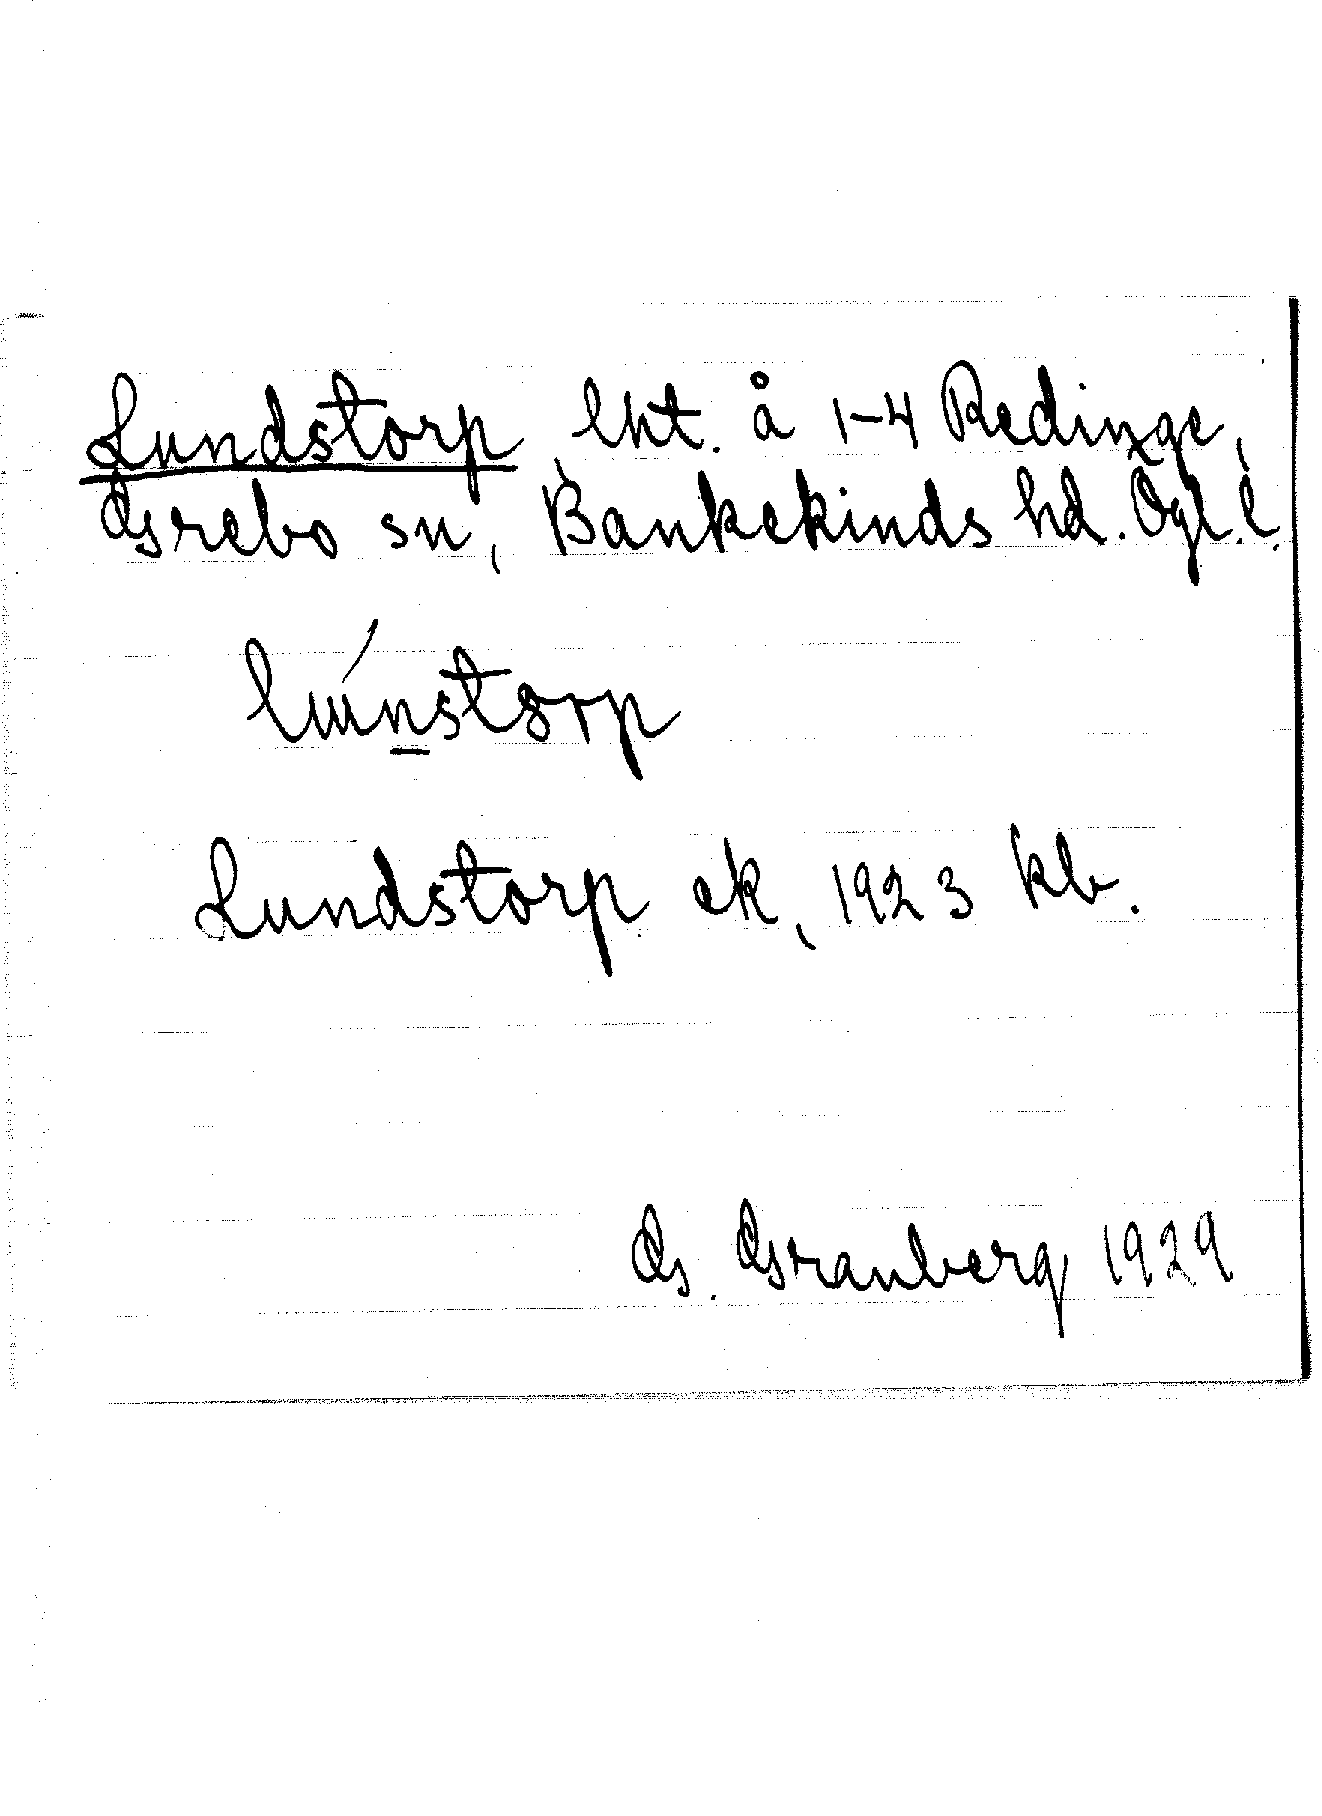 Lundstorp, lht. å 1-4 Redinge,
Grebo sn, Bankekinds hd. Ögl. l.
Lundstorp ek, 1923 kb.
G. Granberg 1929